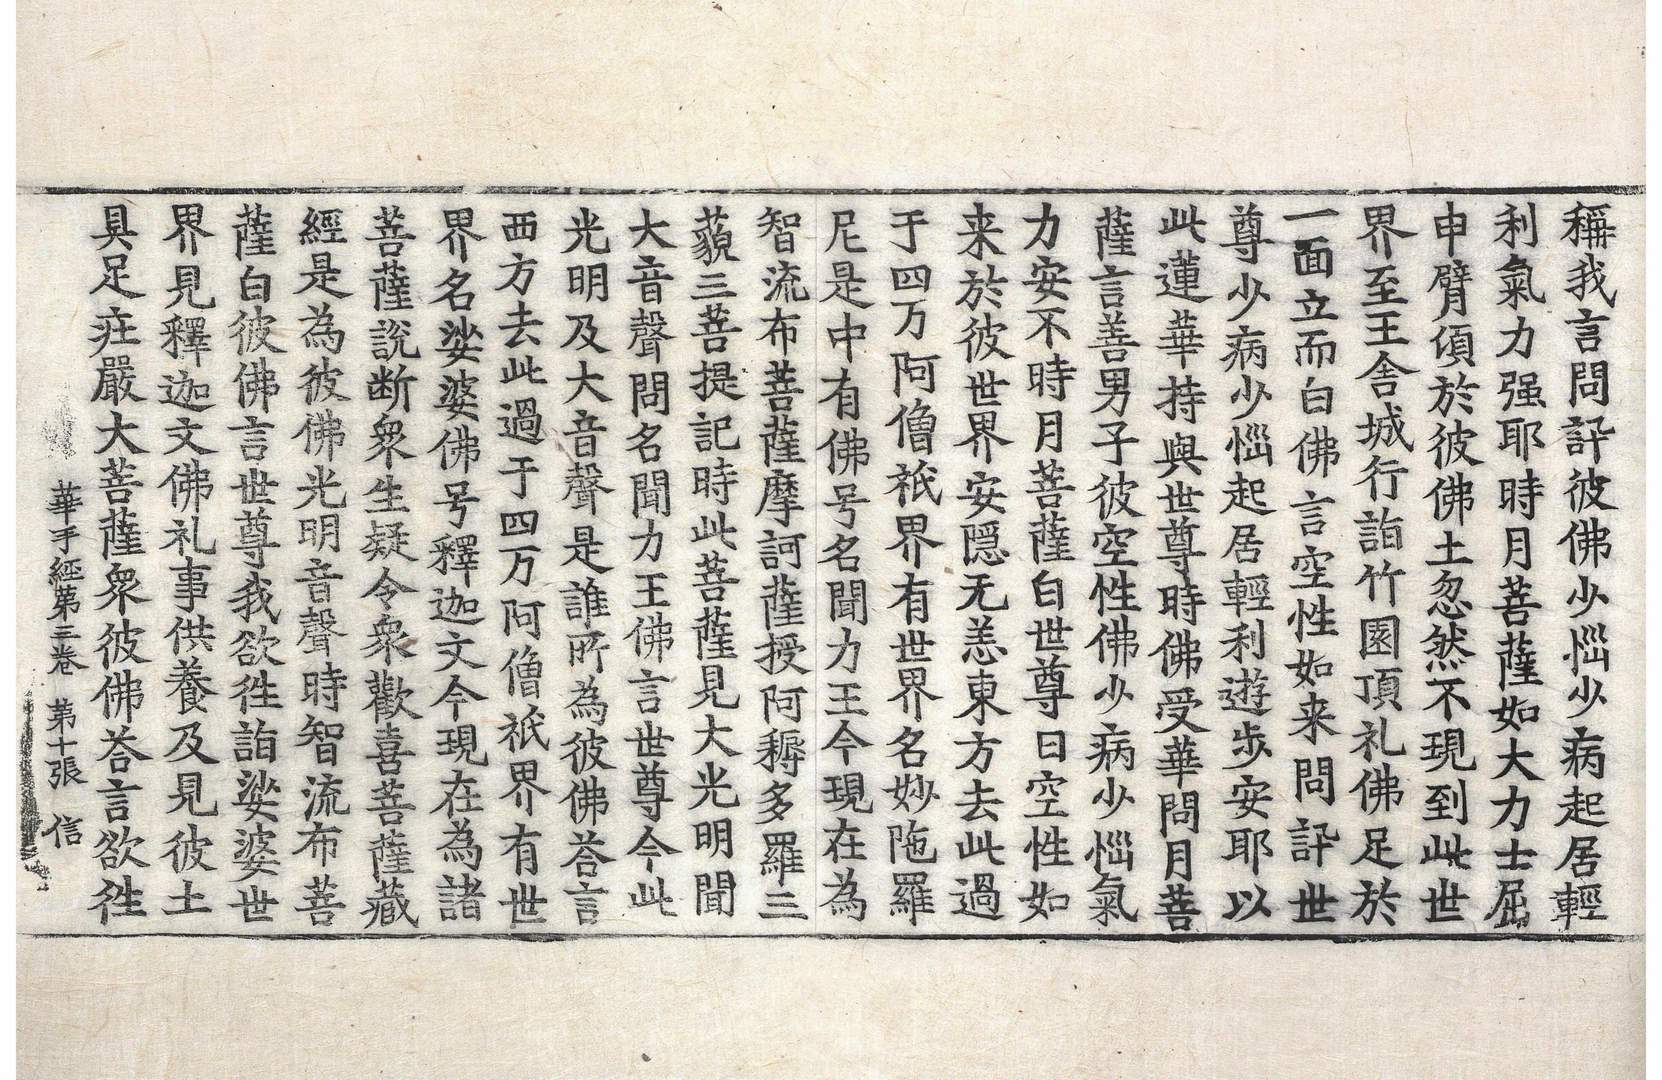 稱我言問訊彼佛少惱少病起居輕
利氣力强耶時月菩薩如大力士屈
申臂頃於彼佛土忽然不現到此世
界至王舍城行詣竹園頂礼佛足於
一面立而白佛言空性如来問訊世
尊少病少惱起居輕利遊步安耶以
此蓮華持與世尊時佛受華問月菩
薩言善男子彼空性佛少病少惱氣
力安不時月菩薩白世尊曰空性如
来於彼世界安隠无恙東方去此過
于四万阿僧祇界有世界名妙陁羅
尼是中有佛号名聞力王今現在為
智流布菩薩摩訶薩授阿耨多羅三
藐三菩提記時此菩薩見大光明聞
大音聲問名聞力王佛言世尊今此
光明及大音聲是誰所為彼佛荅言
西方去此過于四万阿僧祇界有世
界名娑婆佛号釋迦文今現在為諸
菩薩說断衆生疑令衆歡喜菩薩藏
經是為彼佛光明音聲時智流布菩
薩白彼佛言世尊我欲徃詣娑婆世
界見釋迦文佛礼事供養及見彼土
具足莊嚴大菩薩衆彼佛荅言欲徃
華手經第三卷 第十張 信